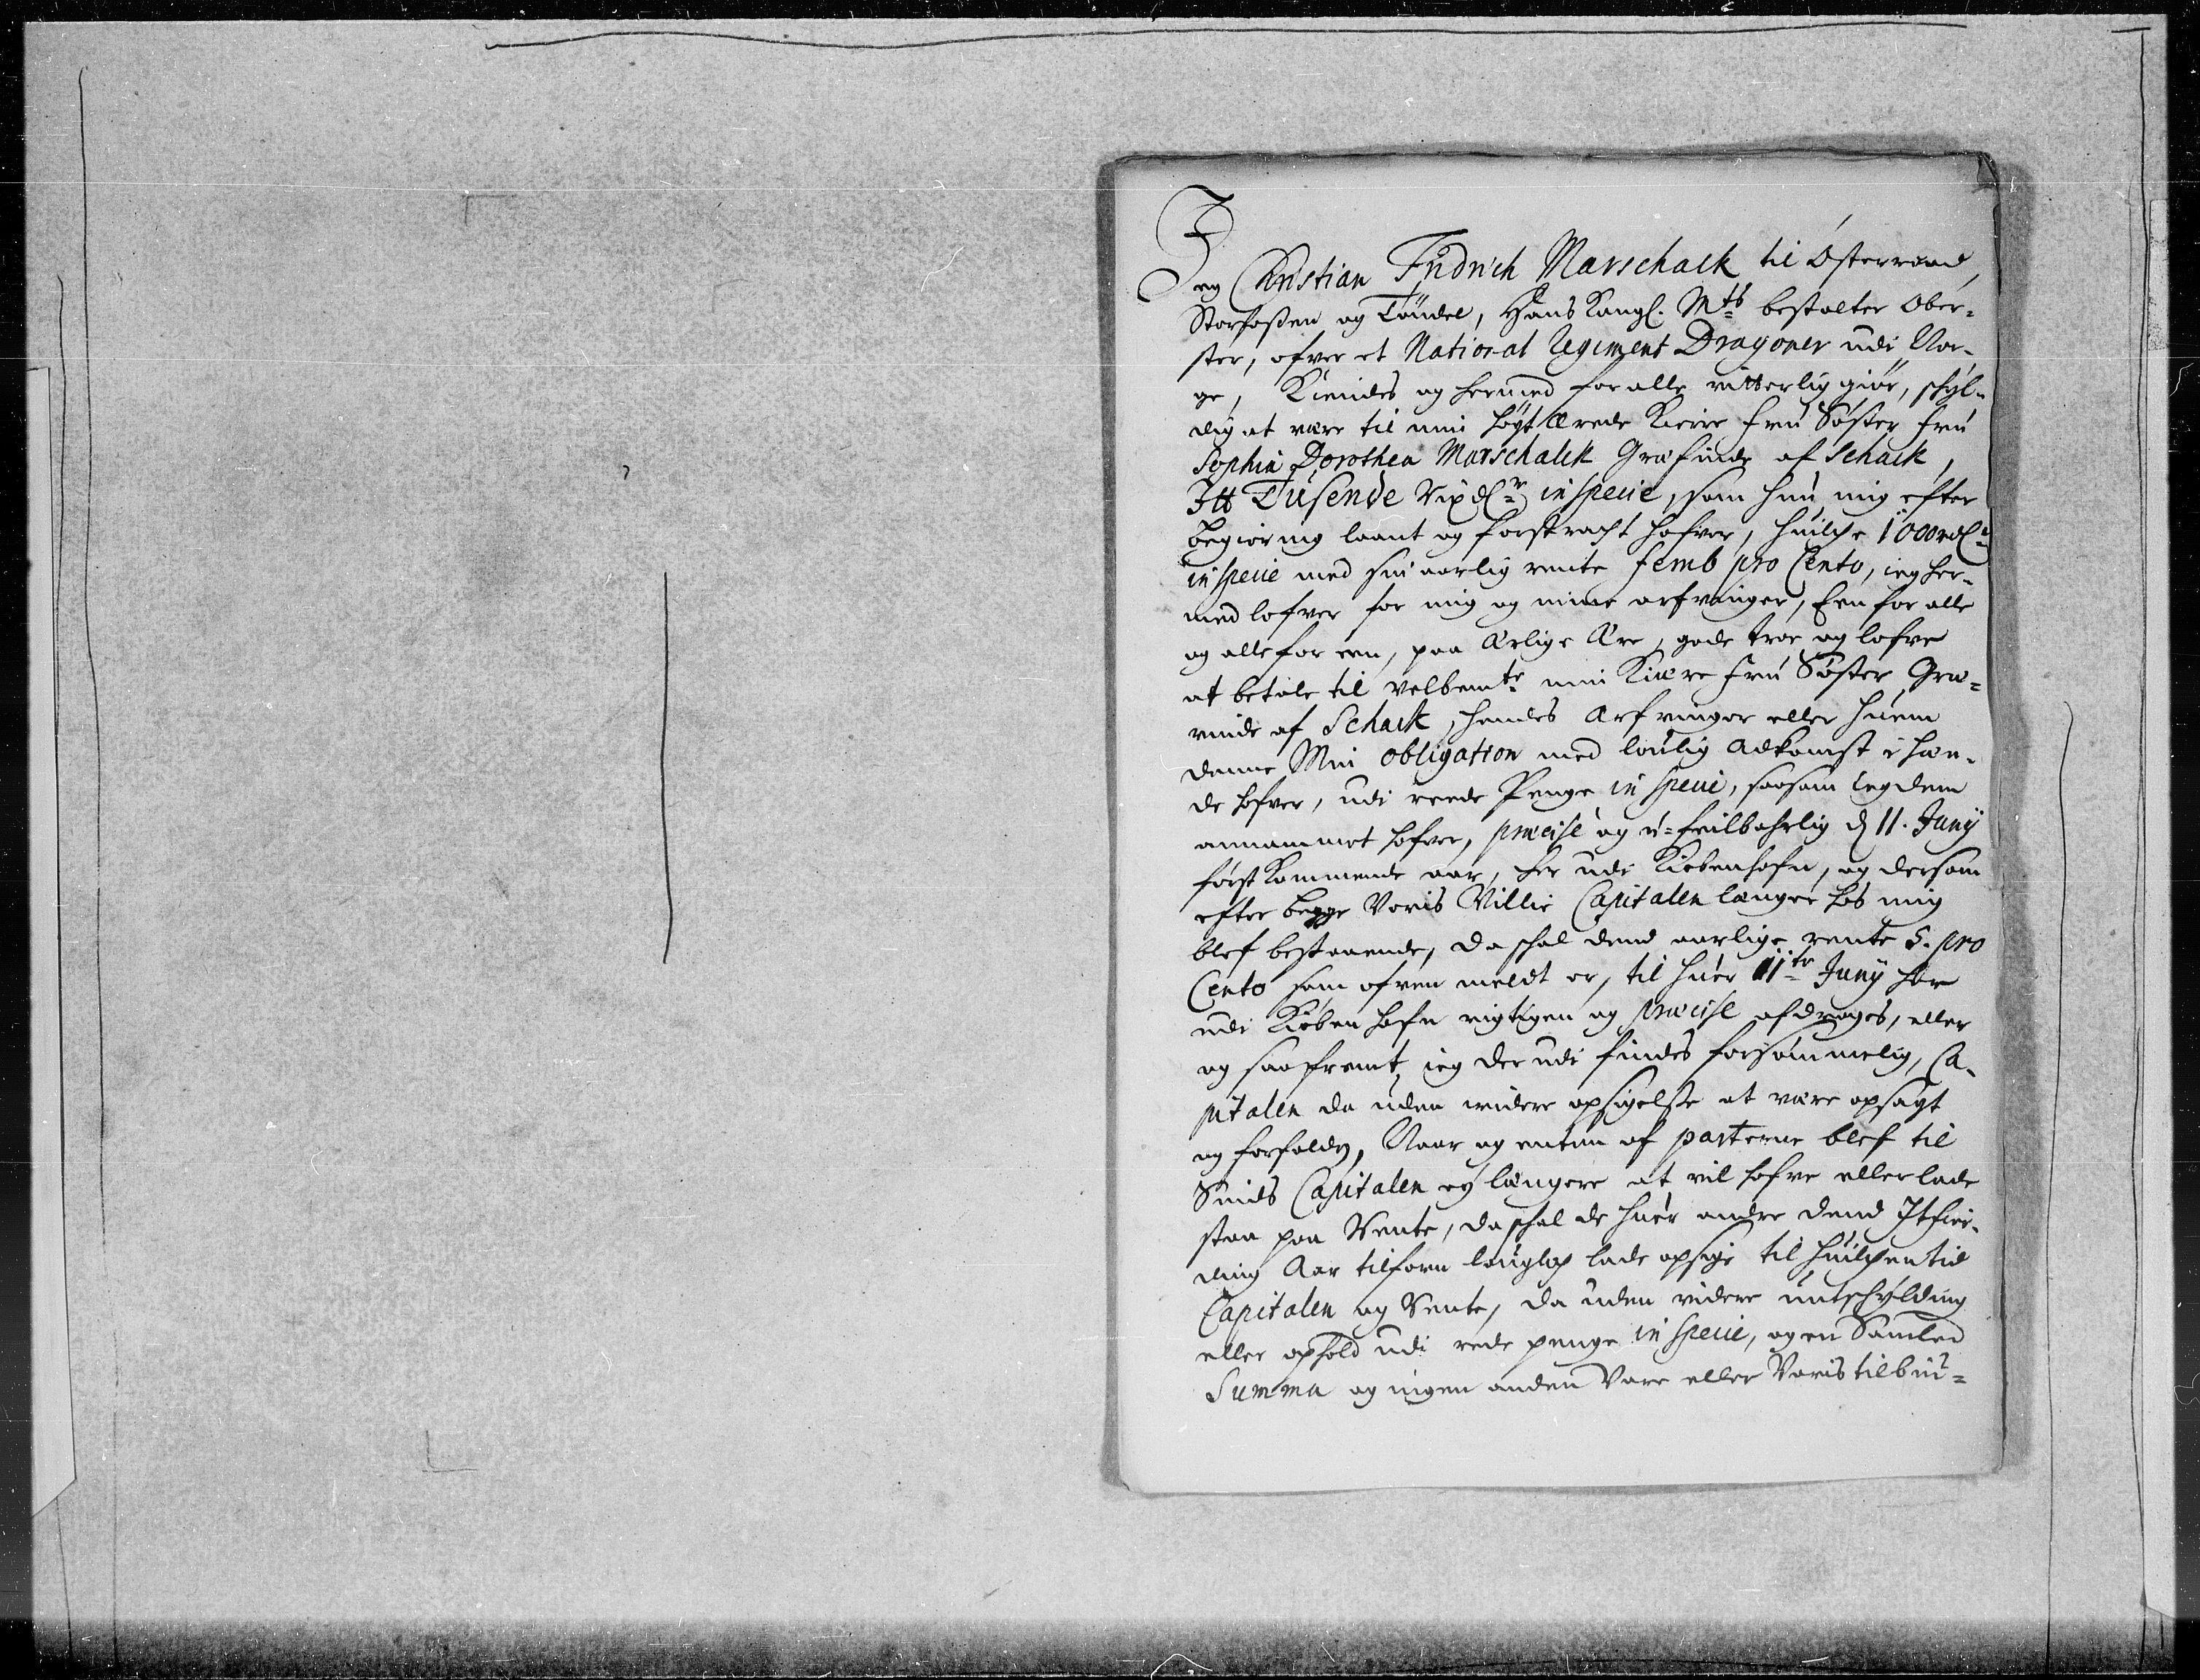 Jeg Christian Fridrich Marschalk til Østerraad,
Storfossen og Tøndel, Hans Kongl. Mts bestalter Ober-
ster, ofver et National Regiment Dragoner udi Nor-
ge, Kiendes og hermed for alle vitterlig giør, schÿl-
dig at være til min høÿtærede Kiere Frú Søster Frú
Sophia Dorothea Marschalck Grefinde af Schack,
Itt Tusende Rixdlr in specie, som hún mig efter
begiering laant og forstracht hafver, húilche 1000 rdlr
in specie med sin aarlig rente femb pro Cento, ieg her-
med lofver for mig og mine arfvinger, Een for alle
og alle for een, paa ærlige ære, gode troe og lofve
at betale til velbemte min Kiære Frú Søster, Gre-
vinde af Schack, hendes Arfvinger eller húem
denne Min obligation med loúlig adkomst i hæn-
de hafver, udi reede Penge in specie, saasom ieg dem
annammet hafver, præcise og ú-feilbahrlig d 11. Junÿ
først kommende aar, her udi Kiøbenhafn, og dersom
efter begge Voris Villie Capitalen længer hos mig
blef bestaaende, da schal dend aarlige rente 5. pro
Cento som ofven meldt er, til húer 11te Junÿ her
udi Kiøbenhafn rigtigen og præcise afdrages, eller
og saafremt ieg der udi findes forsømmelig, Ca-
pitalen da uden videre opsigelse at være opsagt
og forfalden, Naar og enten af parterne blef til
Sinds Capitalen eÿ længere at vil hafve eller lade
staa paa Rente, da schal de húer andre dend Itfier-
ding Aar tilforn loúglig lade opsige til húilchen tid
Capitalen og Rente, da uden videre undschÿlding
eller ophold udi rede penge in specie, og en Samled
Summa og ingen anden Vare eller Voris tilbúi-